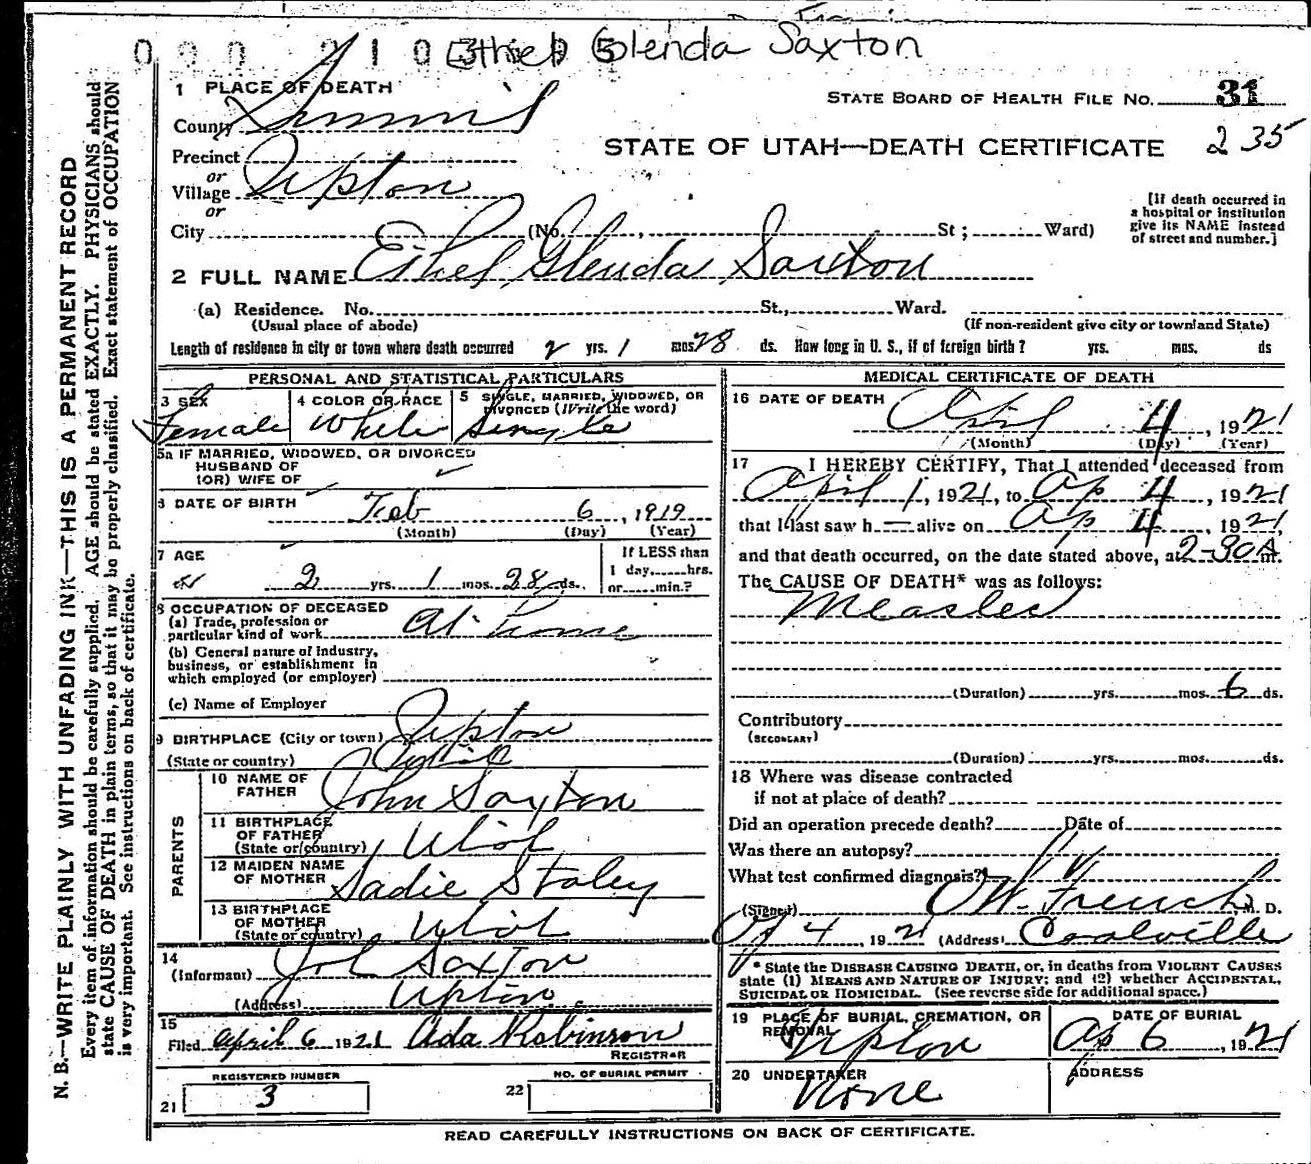 Ethel Glenda Saxton
1 PLACE OF DEATH
STATE BOARD OF HEALTH FILE NO. 31
County Summit
STATE OF UTAH—DEATH CERTIFICATE 235
Precinct
or
Village Upton
or
City (No. , St ; Ward)
[If death occurred in
a hospital or institution
give its NAME instead
of street and number.]
2 FULL NAME Ethel Glenda Saxton
(a) Residence. No. St., Ward.
(Usual place of abode) (If non-resident give city or town and State)
Length of residence in city or town where death occurred 2 yrs. 1 mos. 28 ds. How long in U. S., if of foreign birth? yrs. mos. ds
PERSONAL AND STATISTICAL PARTICULARS
3 SEX
Female
4 COLOR OR RACE
White
5 SINGLE, MARRIED, WIDOWED, OR
DIVORCED (Write the word)
Single
5a IF MARRIED, WIDOWED, OR DIVORCED
HUSBAND OF
(OR) WIFE OF
6 DATE OF BIRTH
Feb 6, 1919
(Month) (Day) (Year)
7 AGE
2 yrs. 1 mos. 28 ds.
If LESS than
1 day......hrs.
or......min.?
8 OCCUPATION OF DECEASED
(a) Trade, profession or
particular kind of work At home
(b) General nature of industry,
business, or establishment in
which employed (or employer)
(c) Name of Employer
9 BIRTHPLACE (City or town) Upton
(State or country)
PARENTS
10 NAME OF
FATHER John Saxton
11 BIRTHPLACE
OF FATHER
(State or country) Utah
12 MAIDEN NAME
OF MOTHER Sadie Staley
13 BIRTHPLACE
OF MOTHER
(State or country) Utah
14
(Informant) Saxton
(Address) Upton.
15
Filed April 6 1921 Ada Robinson
REGISTRAR
REGISTERED NUMBER
21 3
NO. OF BURIAL PERMIT
22
MEDICAL CERTIFICATE OF DEATH
16 DATE OF DEATH
April 4, 1921
(Month) (Day) (Year)
17 I HEREBY CERTIFY, That I attended deceased from
April 1, 1921, to Ap 4, 1921
that I last saw h— alive on Ap 4, 1921,
and that death occurred, on the date stated above, at 2-30 A m.
The CAUSE OF DEATH* was as follows:
Measles
(Duration) yrs. mos. 6 ds.
Contributory
(SECONDARY)
(Duration) yrs. mos. ds.
18 Where was disease contracted
if not at place of death?
Did an operation precede death? Date of
Was there an autopsy?
What test confirmed diagnosis?
(Signed) French, M. D.
4, 1921 (Address) Coalville
* State the DISEASE CAUSING DEATH, or, in deaths from VIOLENT CAUSES
state (1) MEANS AND NATURE OF INJURY; and (2) whether ACCIDENTAL,
SUICIDAL OR HOMICIDAL. (See reverse side for additional space.)
19 PLACE OF BURIAL, CREMATION, OR
REMOVAL
Upton
DATE OF BURIAL
Ap 6, 1921
20 UNDERTAKER
None
ADDRESS
READ CAREFULLY INSTRUCTIONS ON BACK OF CERTIFICATE.
N. B.—WRITE PLAINLY WITH UNFADING INK—THIS IS A PERMANENT RECORD
Every item of information should be carefully supplied. AGE should be stated EXACTLY. PHYSICIANS should
state CAUSE OF DEATH in plain terms, so that it may be properly classified. Exact statement of OCCUPATION
is very important. See instructions on back of certificate.